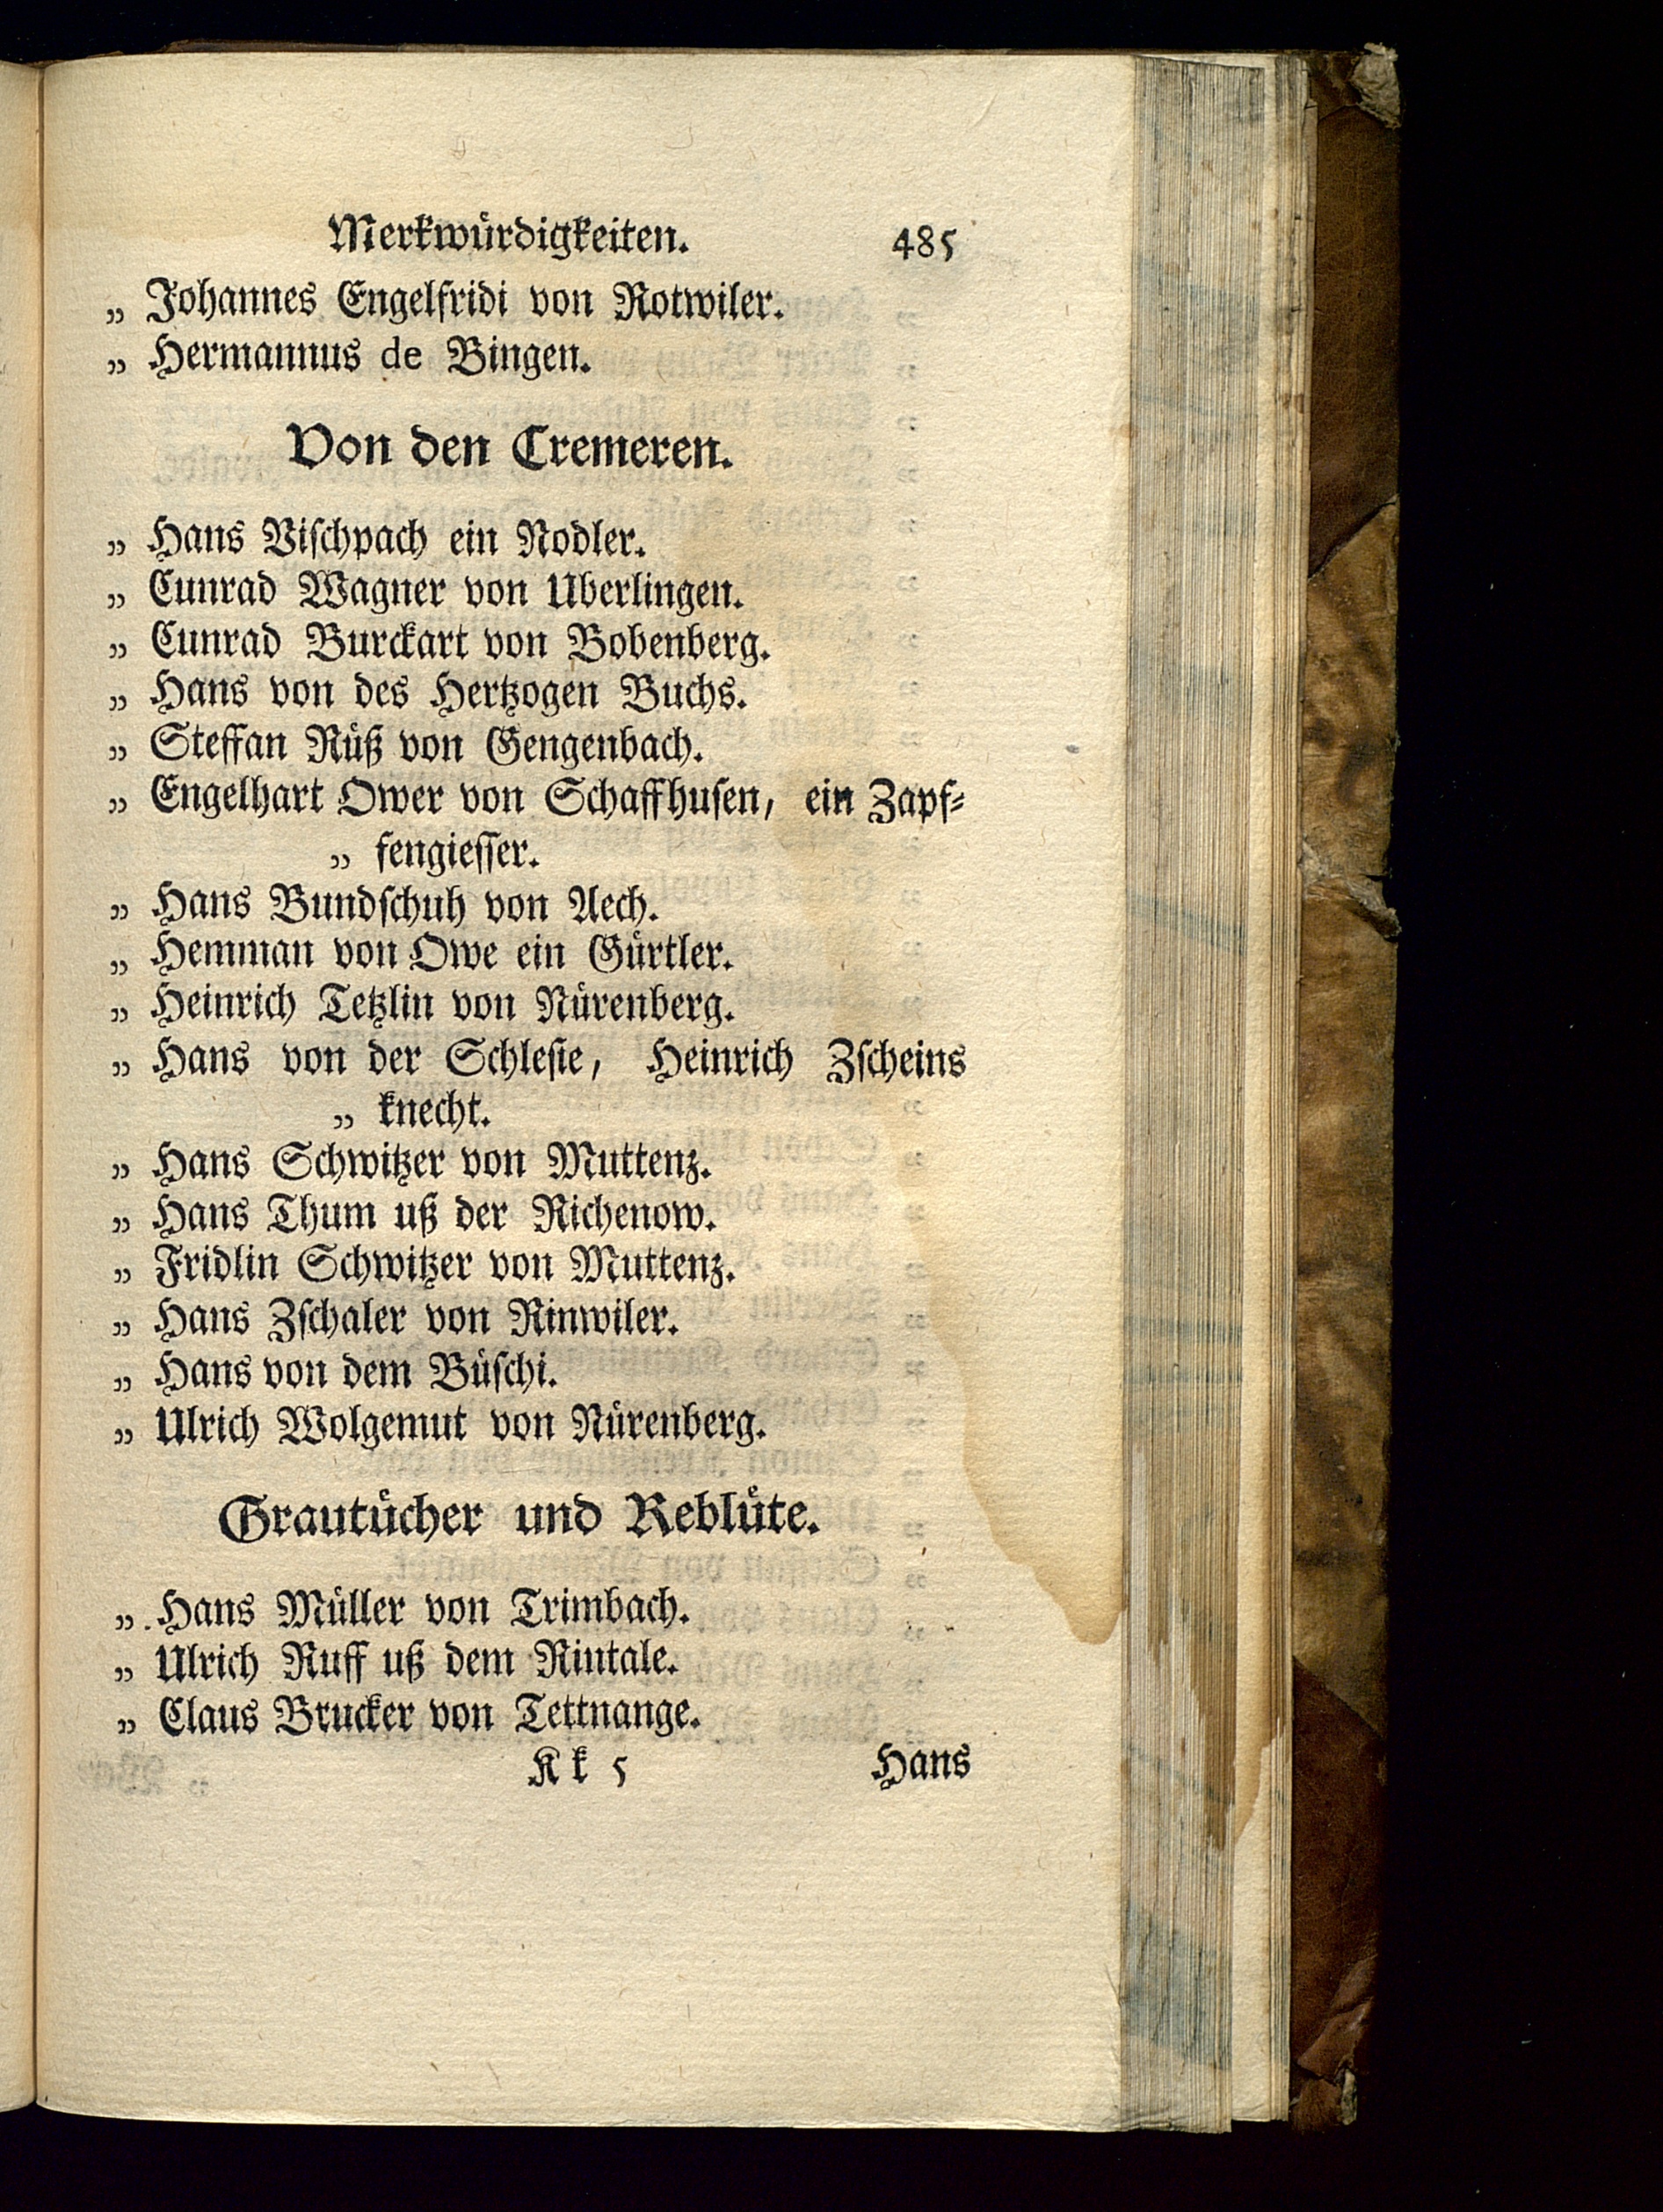 Merkwürdigkeiten. 485
„ Johannes Engelfridi von Rotwiler.
„ Hermannus de Bingen.
Von den Cremeren.
„ Hans Viſchpach ein Nodler.
„ Cunrad Wagner von Uberlingen.
„ Cunrad Burckart von Bobenberg.
„ Hans von des Hertzogen Buchs.
„ Steffan Rüß von Gengenbach.
„ Engelhart Ower von Schaffhuſen, ein Zapf⸗
„ fengieſſer.
„ Hans Bundſchuh von Aech.
„ Hemman von Owe ein Gürtler.
„ Heinrich Tetzlin von Nürenberg.
„ Hans von der Schleſie, Heinrich Zſcheins
„ knecht.
„ Hans Schwitzer von Muttenz.
„ Hans Thum uß der Richenow.
„ Fridlin Schwitzer von Muttenz.
„ Hans Zſchaler von Rinwiler.
„ Hans von dem Büſchi.
„ Ulrich Wolgemut von Nürenberg.
Grautücher und Reblüte.
„ Hans Müller von Trimbach.
„ Ulrich Ruff uß dem Rintale.
„ Claus Brucker von Tettnange.
K k 5 Hans